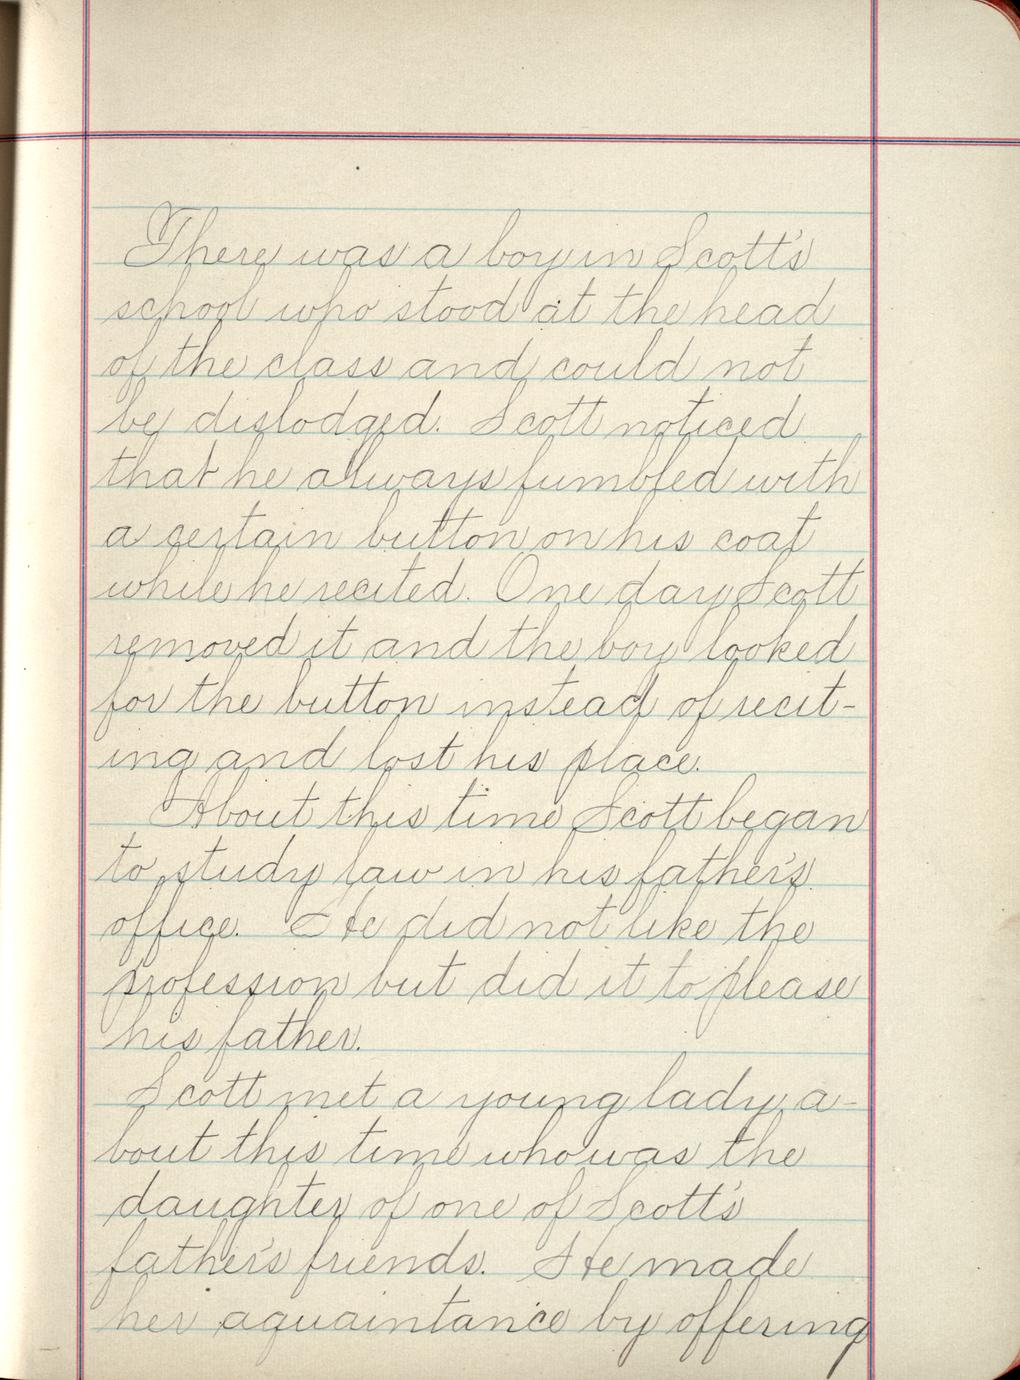 There was a boy in Scott's
school who stood at the head
of the class and could not
be dislodged. Scott noticed
that he always fumbled with
a certain button on his coat
while he recited. One day Scott
removed it and the boy looked
for the button instead of recit-
ing and lost his place.
About this time Scott began
to study law in his father's
office. He did not like the
profession but did it to please
his father.
Scott met a young lady a-
bout this time who was the
daughter of one of Scott's
father's friends. He made
her aquaintance by offering